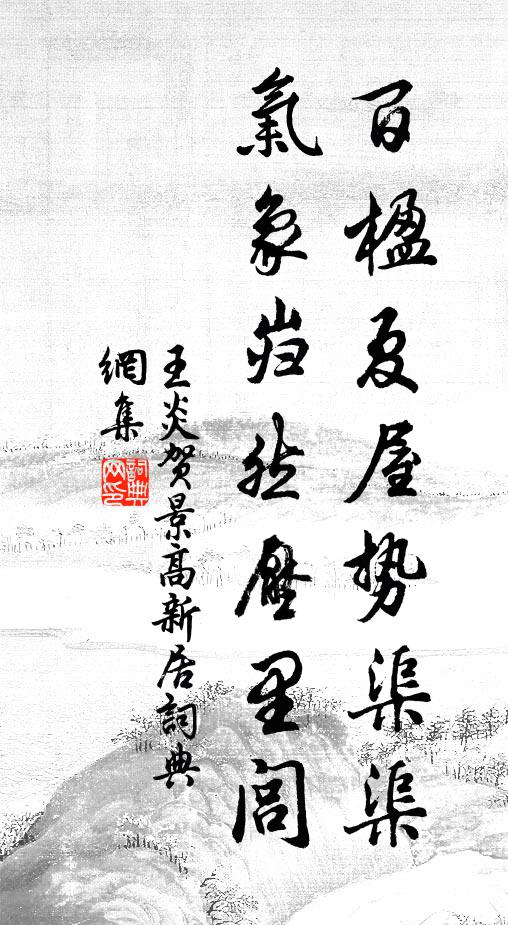 百楹夏屋势渠渠
氣象岿然壓里閭
王炎賀景高新居詞典
網集
詞典
网印